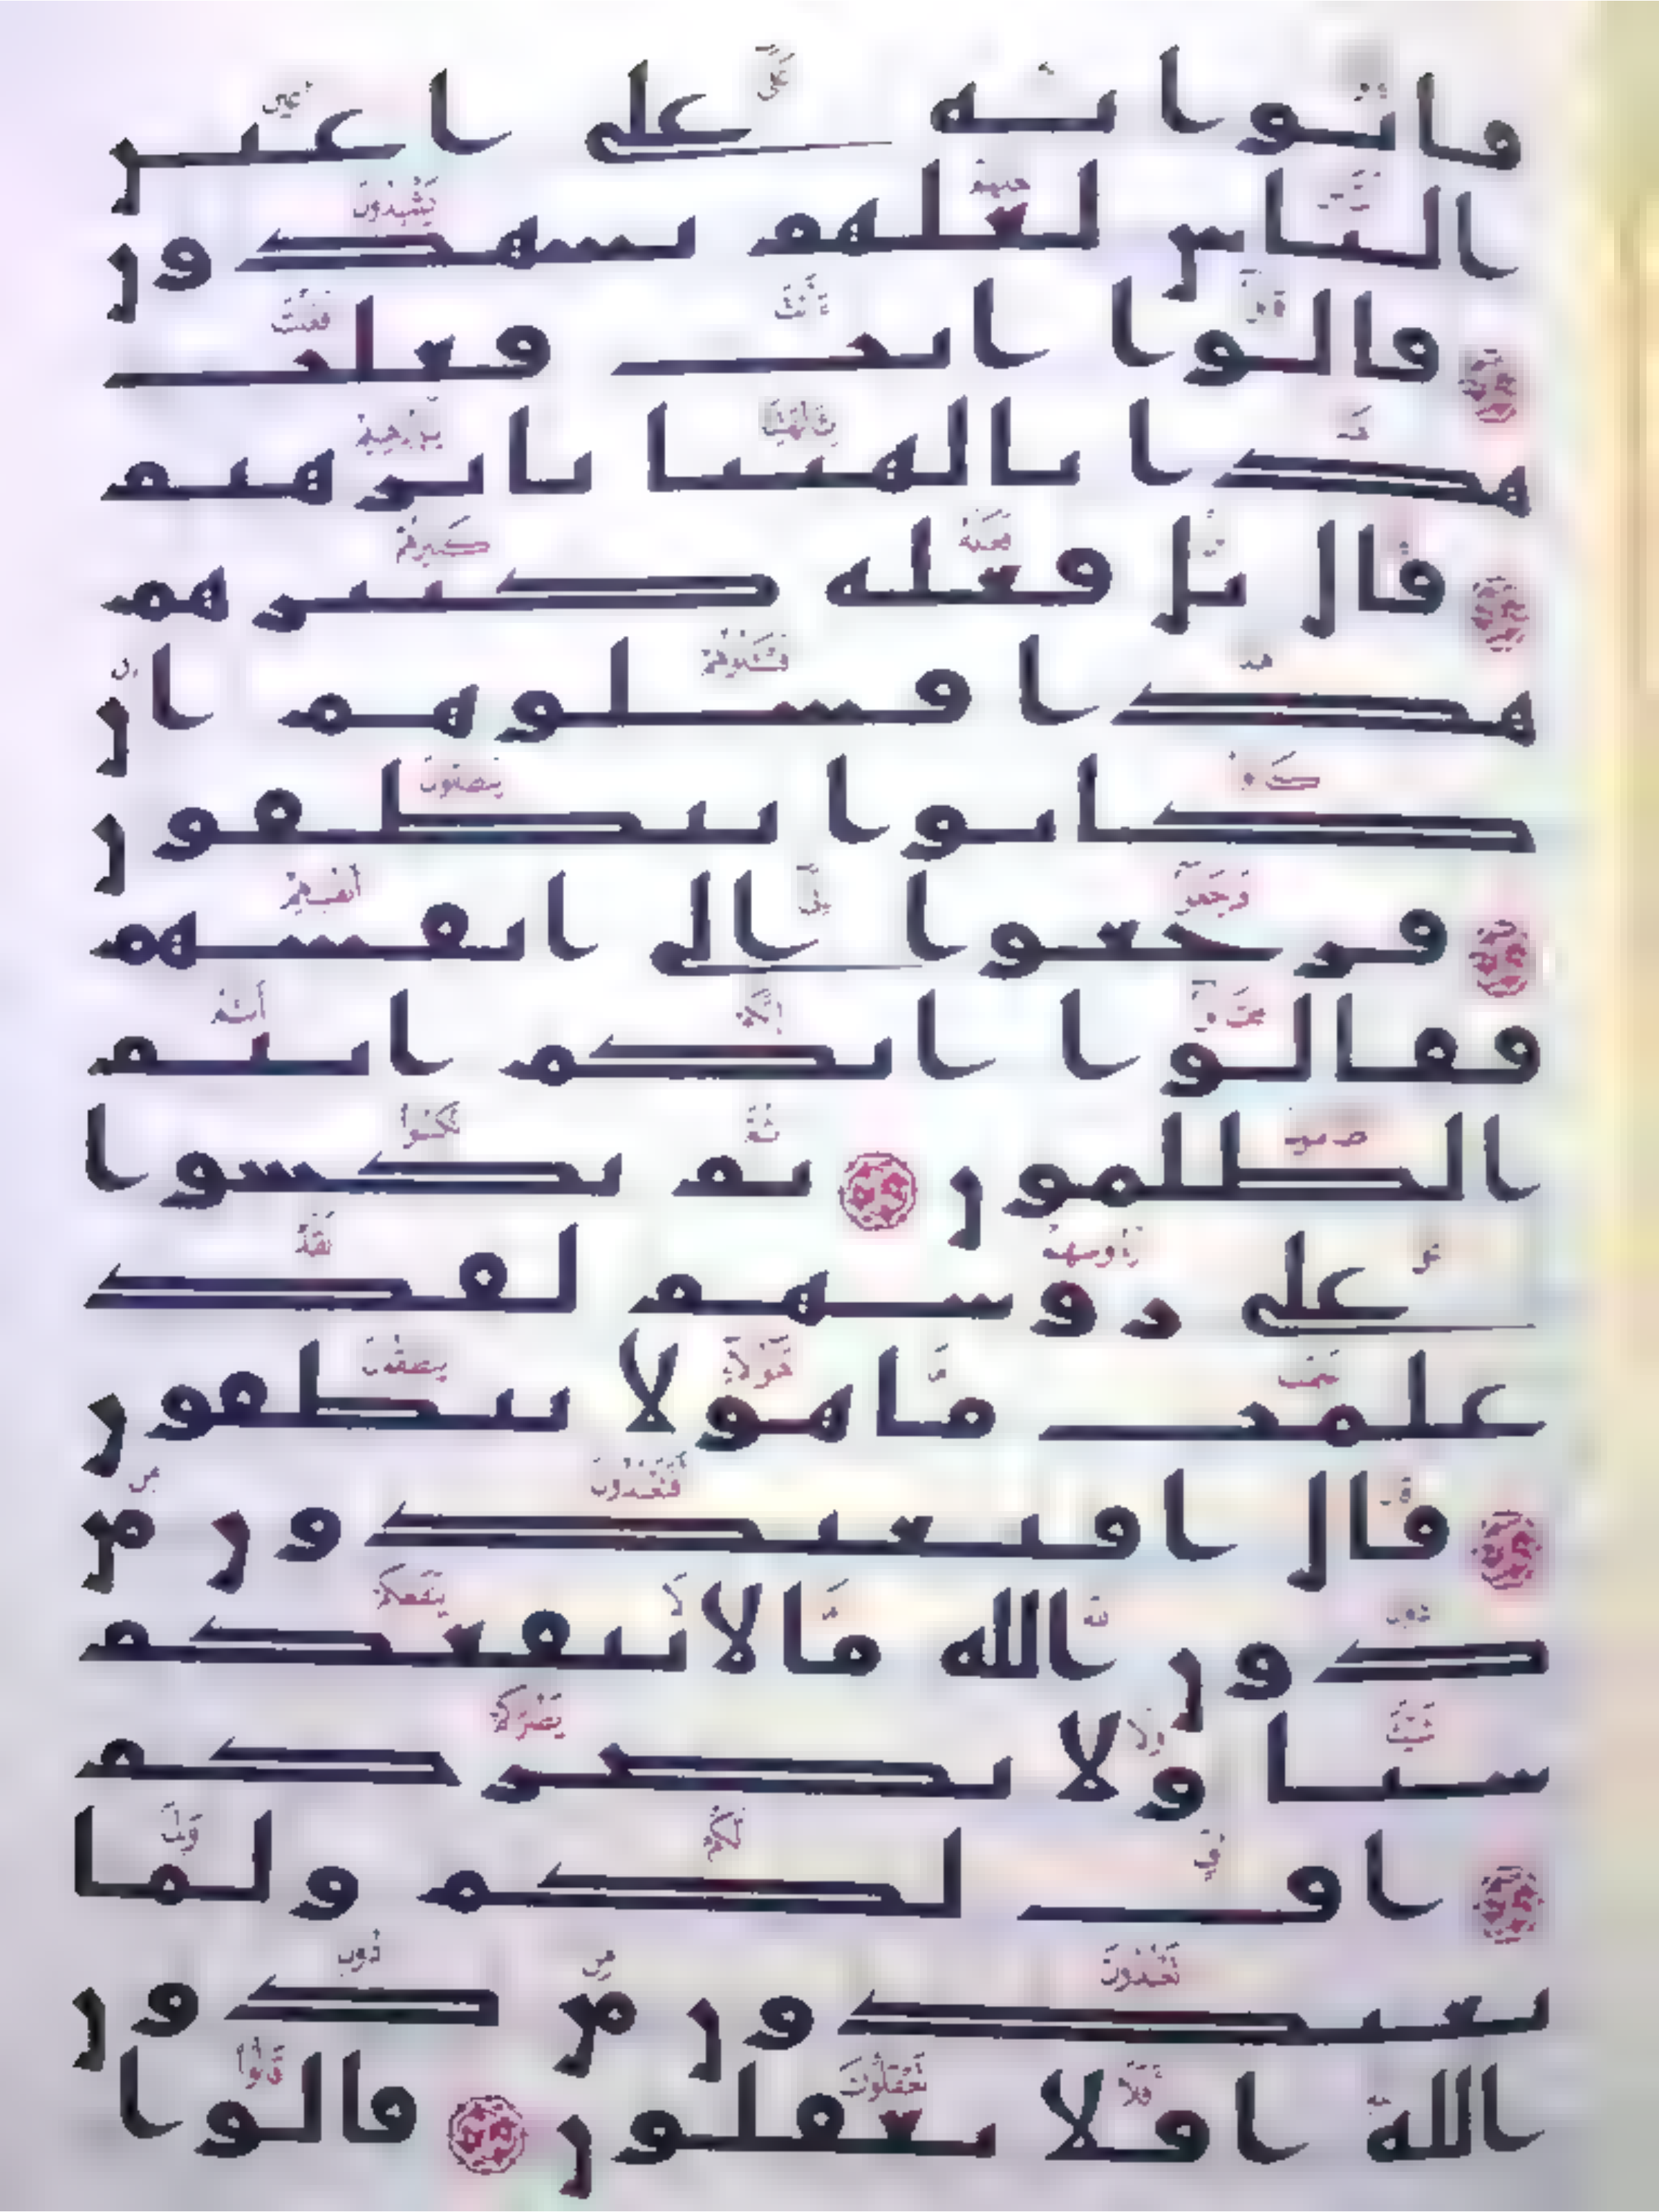 فاتوا به على اعين
الناس لعلهم يشهدون
قالوا انت فعلت
هذا بالهتنا يابرهيم
قال بل فعله كبيرهم
هذا فسلوهم ان
كانوا ينطقون
فرجعوا الى انفسهم
فقالوا انكم انتم
الظلمون ثم نكسوا
على روسهم لقد
علمت ما هولا ينطقون
قال افتعبدون من
دون الله ما لا ينفعكم
شيا ولا يضركم
اف لكم ولما
تعبدون من دون
الله افلا تعقلون قالوا